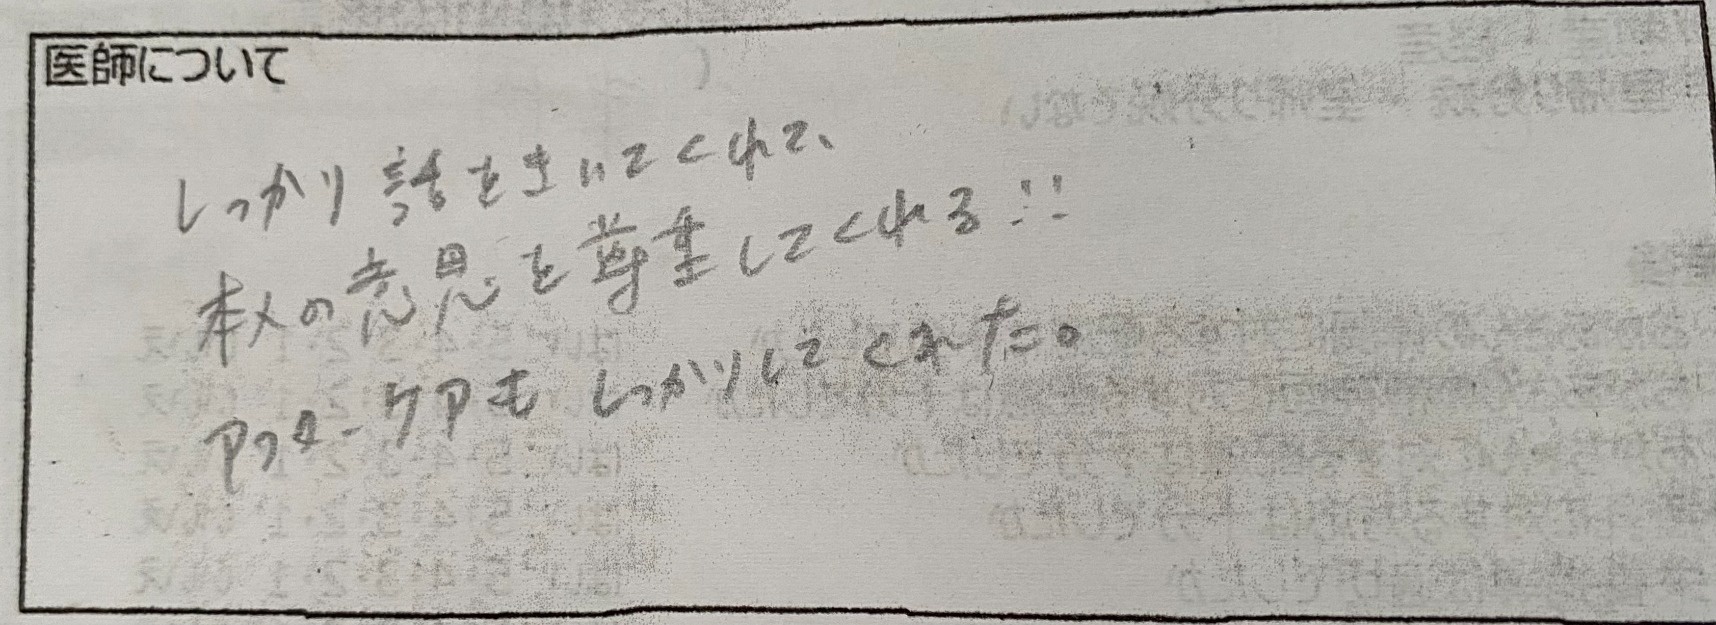 医師について
しっかり話をきいてくれて、
本人の意思を尊重してくれる!!
アフターケアもしっかりしてくれた。